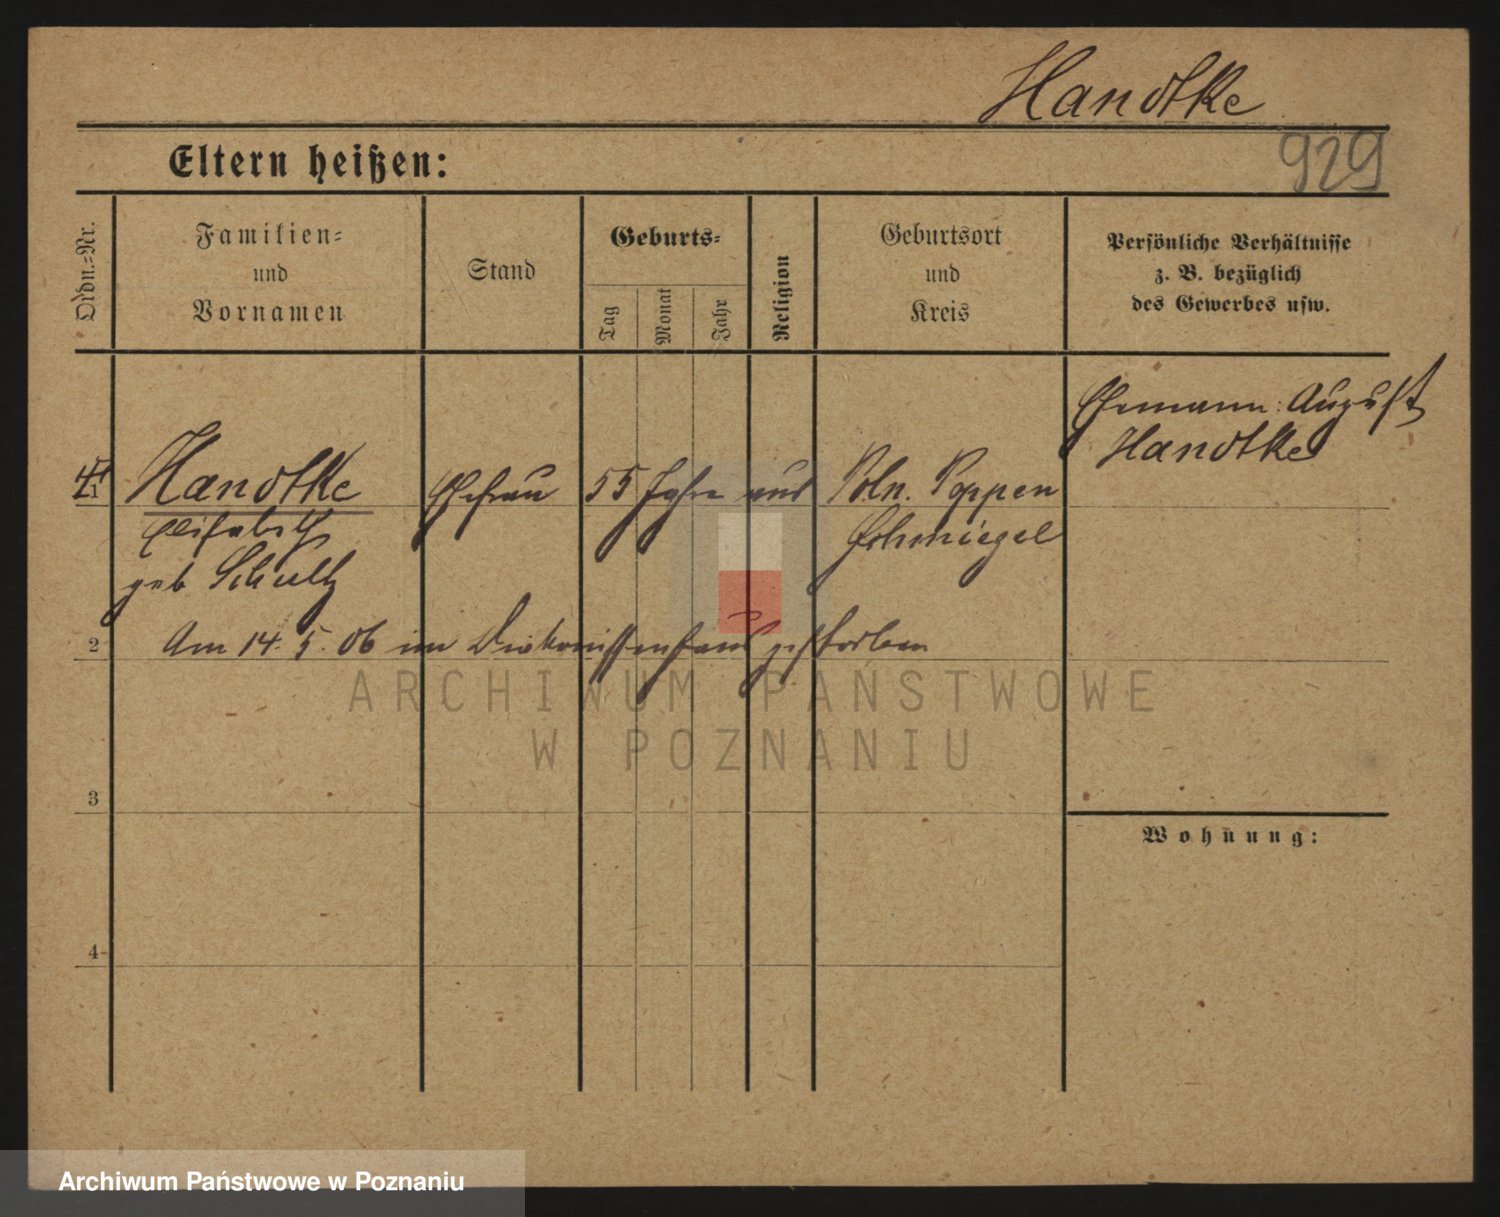 Handtke
929
Eltern heißen:
Ordn.-Nr.
Familien-
und
Vornamen
Stand
Geburts-
Tag
Monat
Jahr
Religion
Geburtsort
und
Kreis
Persönliche Verhältnisse
z. B. bezüglich
des Gewerbes usw.
Ehemann: August
Handtke
1 Handtke Ehefrau 55 Jahre aus Poln. Poppen
Elisabeth Schmiegel
geb Schultz
2 Am 14. 5. 06 im Diakonissenhaus gestorben
ARCHIWUM PAŃSTWOWE
W POZNANIU
3
Wohnung:
4
Archiwum Państwowe w Poznaniu